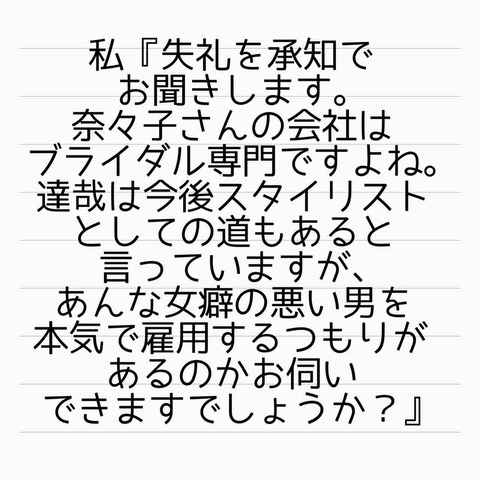 私『失礼を承知で
お聞きします。
奈々子さんの会社は
ブライダル専門ですよね。
達哉は今後スタイリスト
としての道もあると
言っていますが、
あんな女癖の悪い男を
本気で雇用するつもりが
あるのかお伺い
できますでしょうか？』